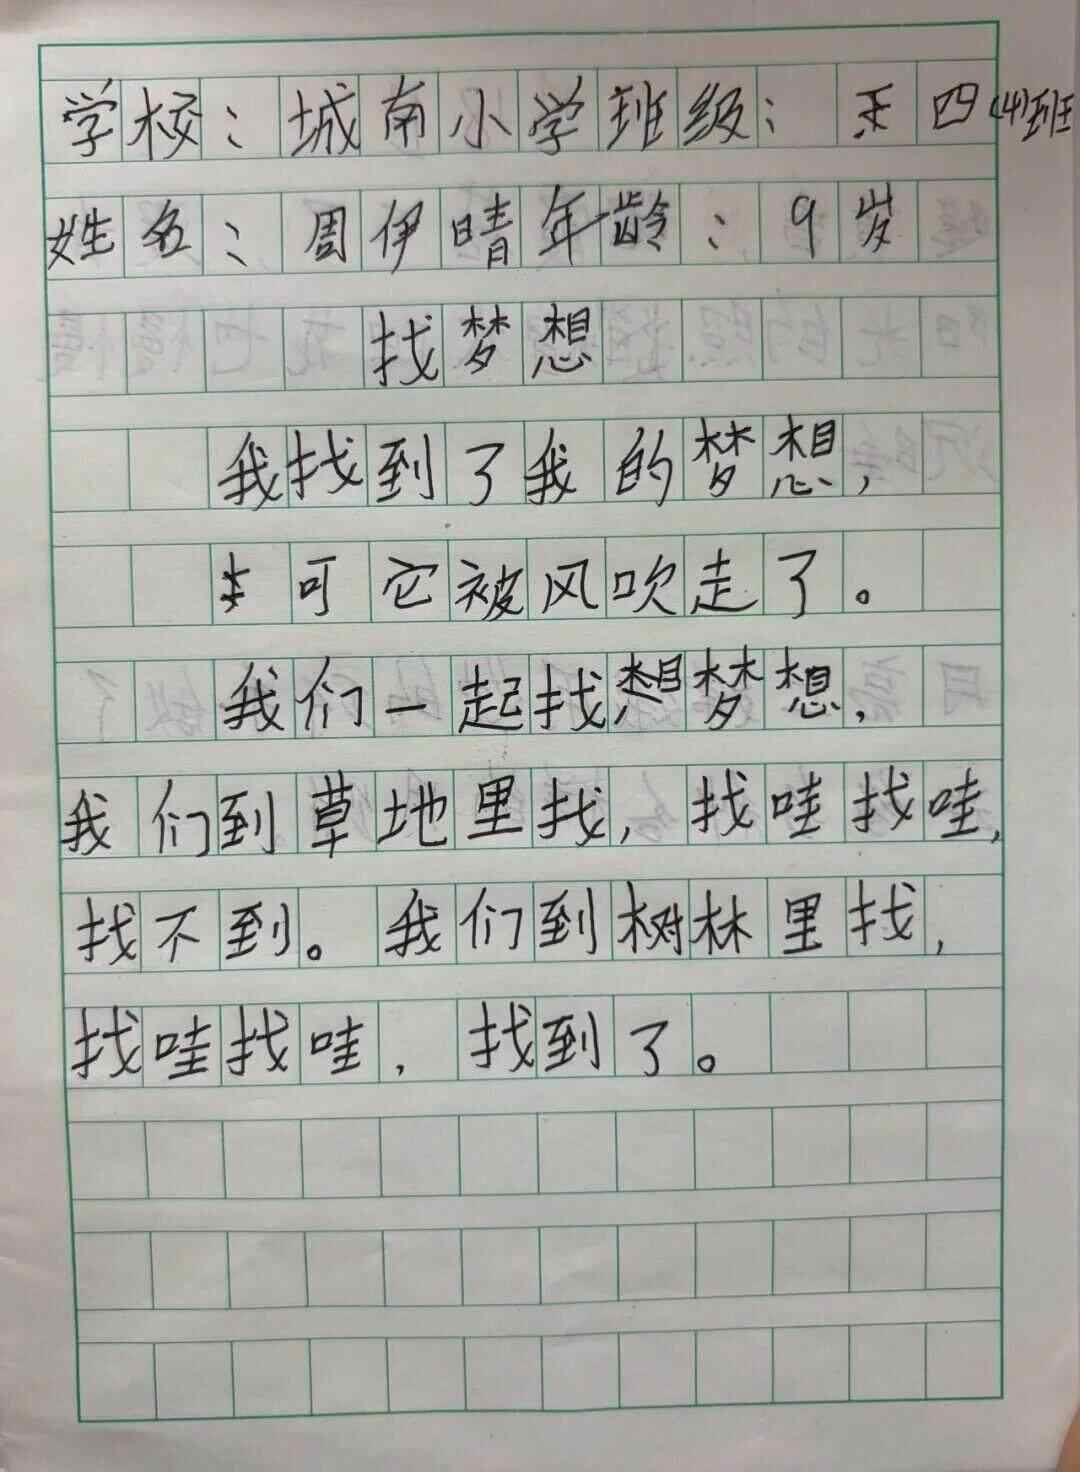 学校：城南小学班级：四(4)班
姓名：周伊晴年龄：9岁
找梦想
我找到了我的梦想，
可它被风吹走了。
我们一起找想梦想，
我们到草地里找，找哇找哇，
找不到。我们到树林里找，
找哇找哇，找到了。